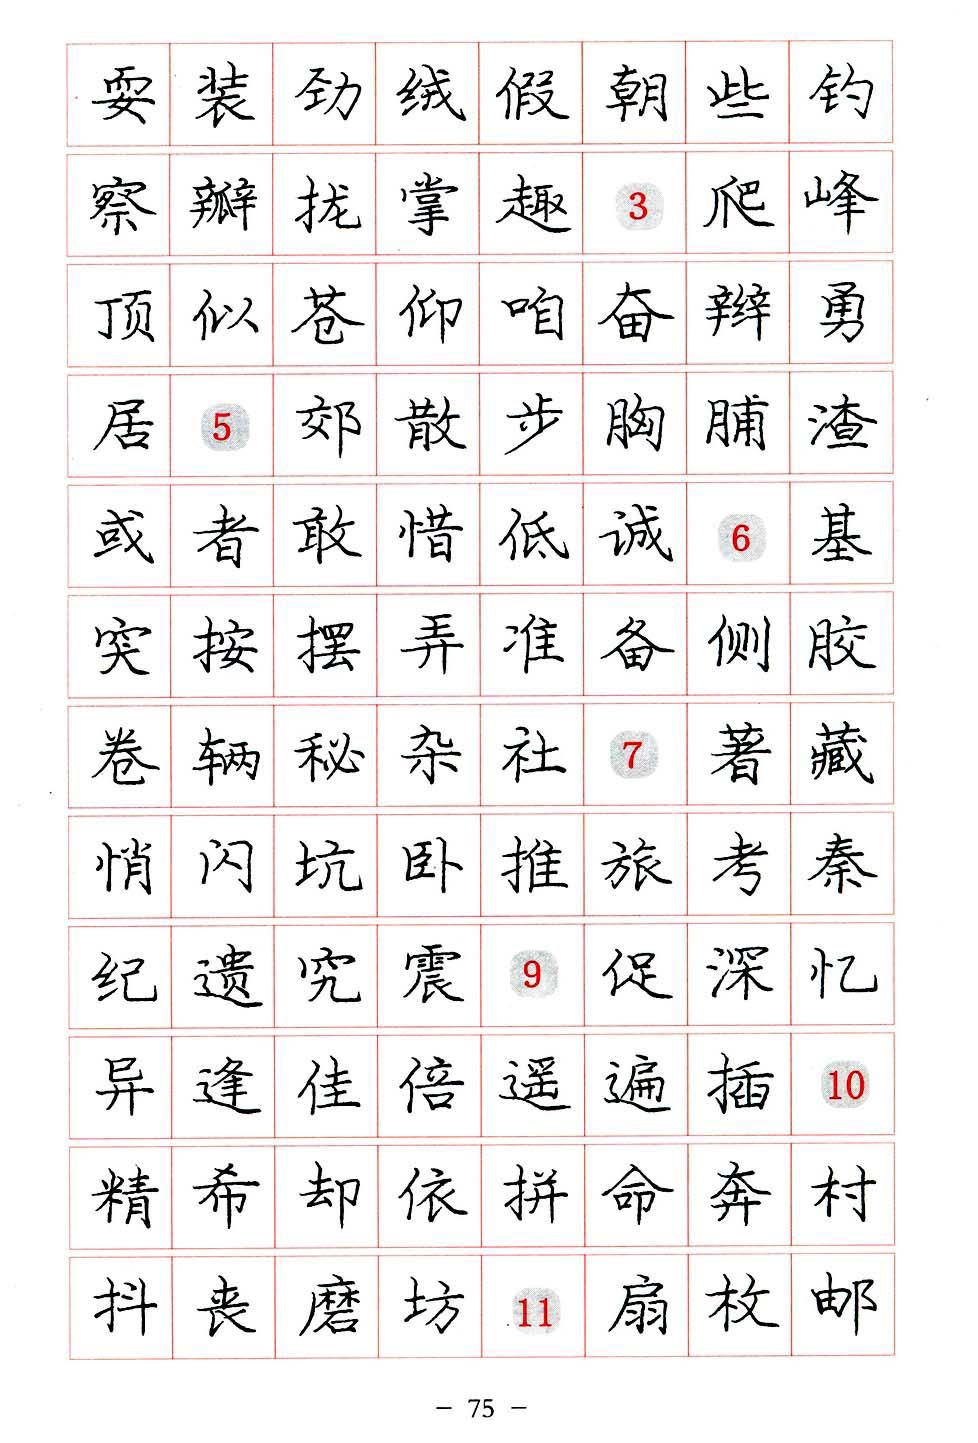 耍装劲绒假朝些钓
察瓣拢掌趣3爬峰
顶似苍仰咱奋辫勇
居5郊散步胸脯渣
或者敢惜低诚6基
突按摆弄准备侧胶
卷辆秘杂社7著藏
悄闪坑卧推旅考秦
纪遗究震9促深忆
异逢佳倍遥遍插10
精希却依拼命奔村
抖丧磨坊11扇枚邮
— 75 —